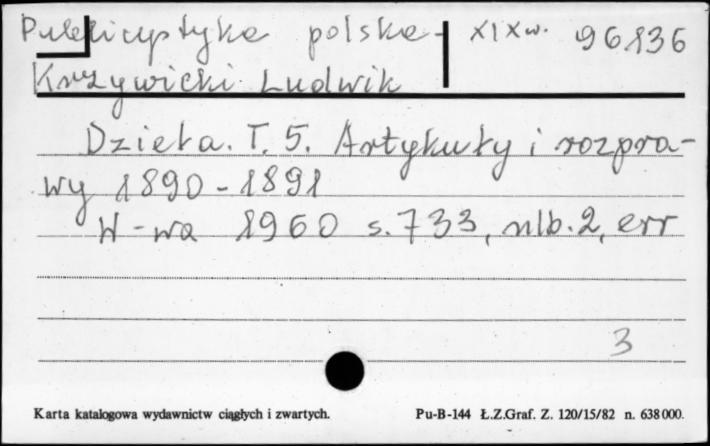 Publicystyka polska - XIX w. 96136
Krzywicki Ludwik
Dzieła. T. 5. Artykuły i rozpra-
wy 1890-1891
W-wa 1960 s. 733, nlb. 2, err
3
Karta katalogowa wydawnictw ciągłych i zwartych. Pu-B-144 Ł.Z.Graf. Z. 120/15/82 n. 638000.